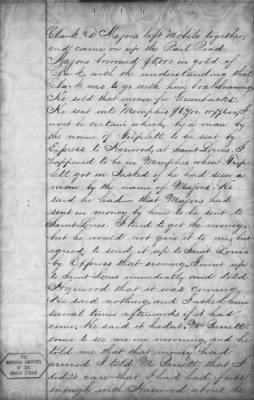 Clark & D Majors left Mobile together,
and came on up the Rail Road.
Majors borrowed $5,000 in gold of
Clark with the understanding that
Clark was to go with him boat burning.
He sold that money for Greenbacks.
He sent into Memphis
wont be certain which, by a man by
the name of Triplett to be sent by
Express to Harwood, at Saint Louis. I
happened to be in Memphis when Trip-
lett got in I asked if he had seen a
man by the name of Majors. He
said he had that Majors had
sent in money by him to be sent to
Saint Louis. I tried to get the money,
but he would not give it to me, but
agreed to send it up to Saint Louis
by Express that evening. I went up
to Saint Louis immediately and told
Harwood that it was coming.
He said nothing, and I asked him
several times afterwards if it had
come. He said it hadnt. Mr Barrett
come to see me one morning, and he
told me that that money had
arrived. I told Mr Barrett that I
didnt care that I had had fuss
enough with Harwood about the
THE
NATIONAL ARCHIVES
OF THE
UNITED STATES